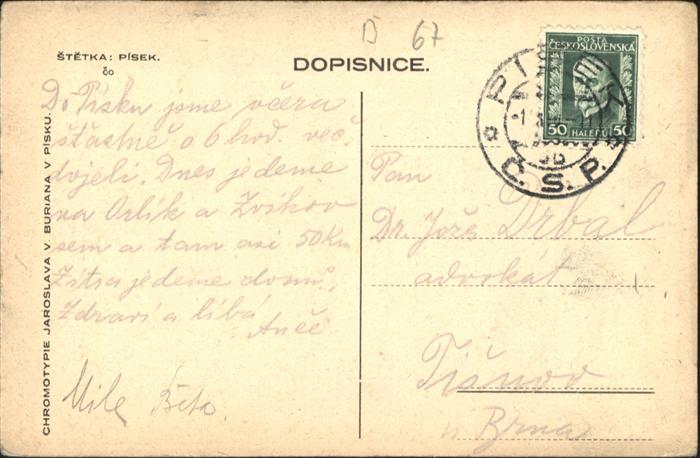 D 67
ŠTĚTKA: PÍSEK.
čo
DOPISNICE.
POŠTA
ČESKOSLOVENSKÁ
50 HALÉŘŮ 50
PÍSEK
Č.S.P.
CHROMOTYPIE JAROSLAVA V. BURIANA V PÍSKU.
Do Písku jsme včera
šťastně o 6 hod. več.
dojeli. Dnes jedeme
na Orlík a Zvíkov
sem a tam asi 50 Km
Zítra jedeme domů.
Zdraví a líbá
Anče
Mile
Pan
Dr. Jož. Drbal
advokát
Tišnov
u Brna